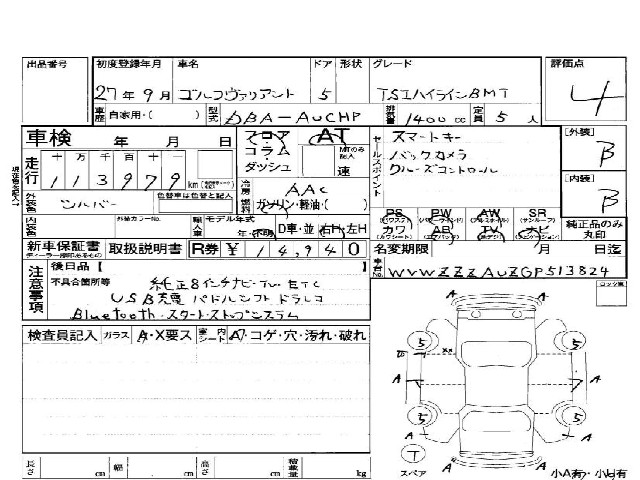 出品番号 初度登録年月 車名 ドア 形状 グレード 評価点
27年9月 ゴルフヴァリアント 5 TSIハイラインBMT 4
車歴 自家用・( ) 型式 DBA-AUCHP 排気量 1400cc 定員 5人
車検 年 月 日 フロア AT セールスポイント スマートキー [外装] B
コラム MTのみ記入 バックカメラ
ダッシュ 速 クルーズコントロール [内装] B
走行 十万千百十一
113979 km 冷房 AAC
外装色 シルバー 色替車は色替と記入 燃料 ガソリン・軽油・( )
PS PW AW SR 純正品のみ丸印
カワ AB TV ナビ
内装色 外装カラーNo. 輸入車 モデル年式 年・不明 D車・並 右H・左H
新車保証書 取扱説明書 R券 ¥14,940 名変期限 月 日迄
車台No. WVWZZZAUZGP513824
注意事項 後日品【 】
不具合箇所等 純正8インチナビ・TV ETC
USB充電 パドルシフト ドラレコ
Bluetooth・スタートストップシステム
検査員記入 ガラス A・X要ス 室内シート A・コゲ・穴・汚れ・破れ
5 5
A A
A A
5 5
A A
T
スペア 小A有・小U有
長さ cm 幅 cm 高さ cm 積載量 kg